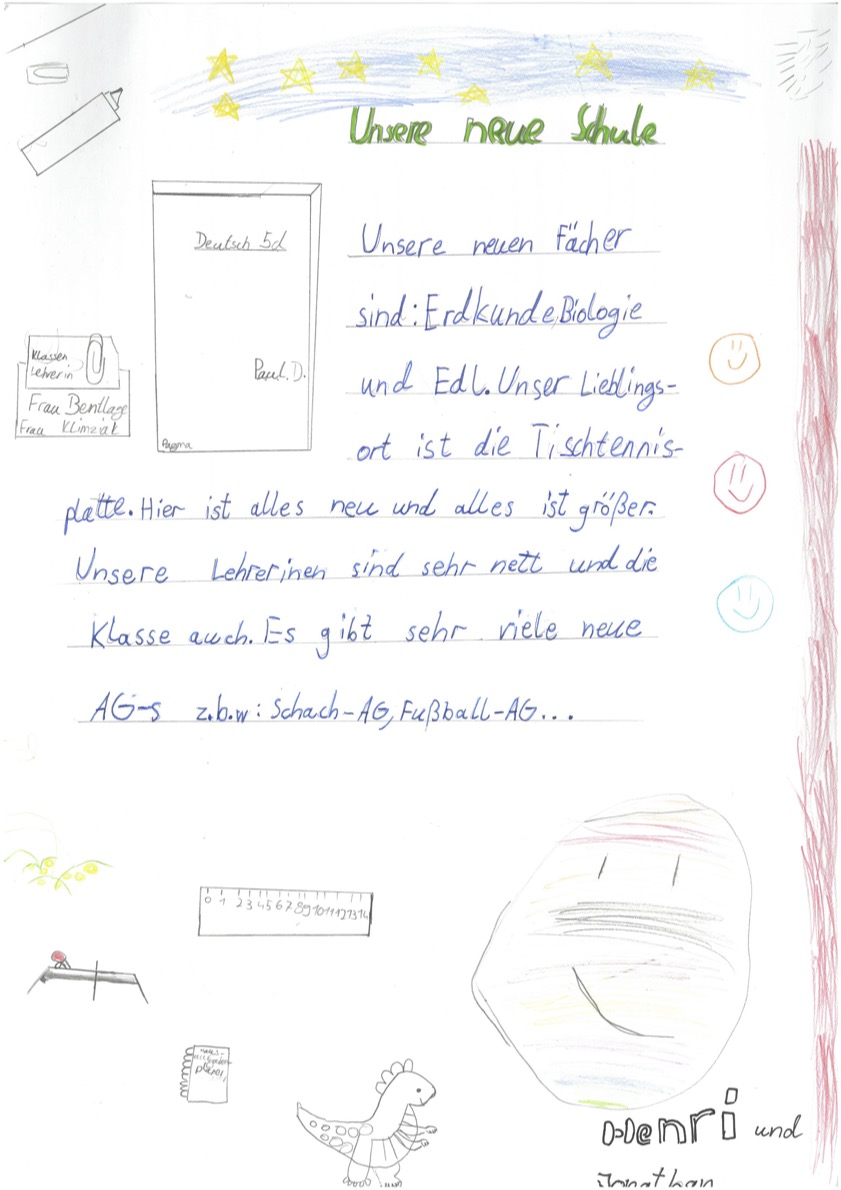 Unsere neue Schule
Deutsch 5d
Paul. D.
Pagma
Klassen
Lehrerin
Frau Bentlage
Frau Klimziak
Unsere neuen Fächer
sind: Erdkunde, Biologie
und Edl. Unser Lieblings-
ort ist die Tischtennis-
platte. Hier ist alles neu und alles ist größer.
Unsere Lehrerinen sind sehr nett und die
Klasse auch. Es gibt sehr viele neue
AG-s z.b.w: Schach-AG, Fußball-AG...
0 1 2 3 4 5 6 7 8 9 10 11 12 13 14
Henri und
Jonathan